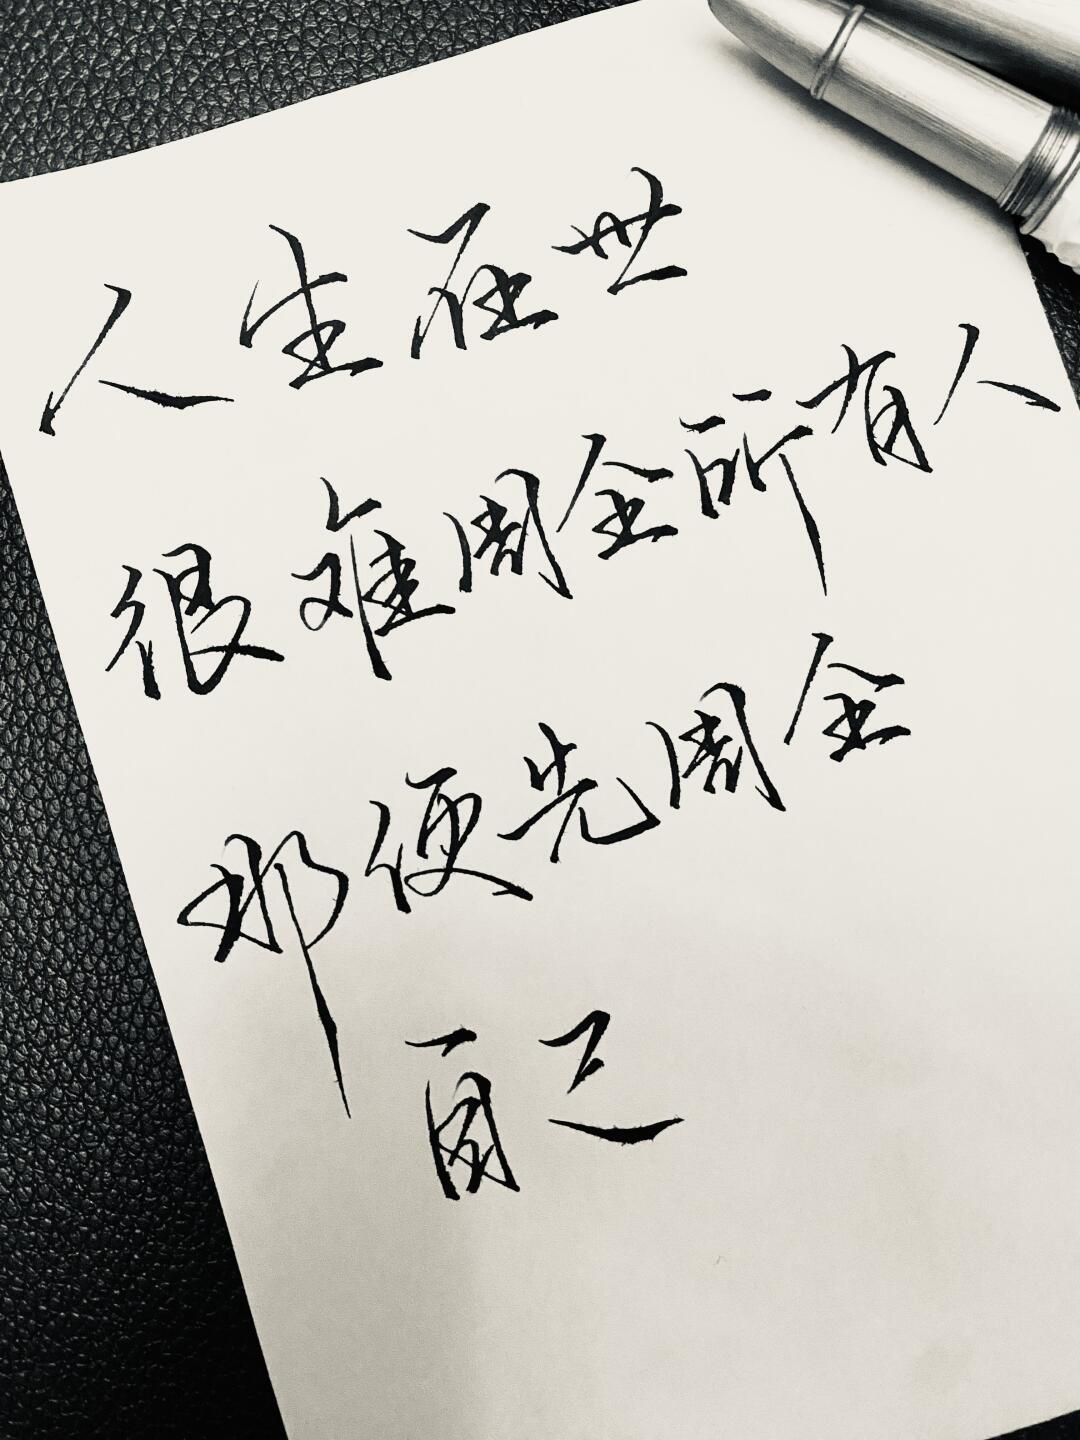 人生在世
很难周全所有人
那便先周全
自己